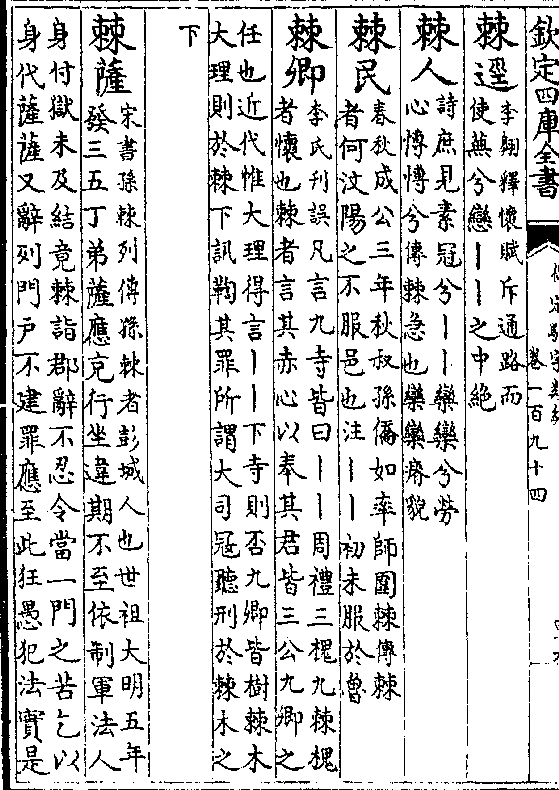 欽定四庫全書
卷一百九十四
棘逕
李翺釋懷賦斥通路而
使蕪兮戀丨丨之中絶
棘人
詩庶見素冠兮丨丨欒欒兮勞
心慱慱兮傳棘急也欒欒瘠貌
棘民
春秋成公三年秋叔孫僑如率師圍棘傳棘
者何汶陽之不服邑也注丨丨初未服於魯
棘卿
李氏刋誤凡言九寺皆曰丨丨周禮三槐九棘槐
者懷也棘者言其赤心以奉其君皆三公九卿之
任也近代惟大理得言丨丨下寺則否九卿皆樹棘木
大理則於棘下訊鞫其罪所謂大司冦聽刑於棘木之
下
棘薩
宋書孫棘列傳孫棘者彭城人也世祖大明五年
發三五丁弟薩應充行坐違期不至依制軍法人
身付獄未及結竟棘詣郡辭不忍令當一門之苦乞以
身代薩薩又辭列門户不建罪應至此狂愚犯法實是